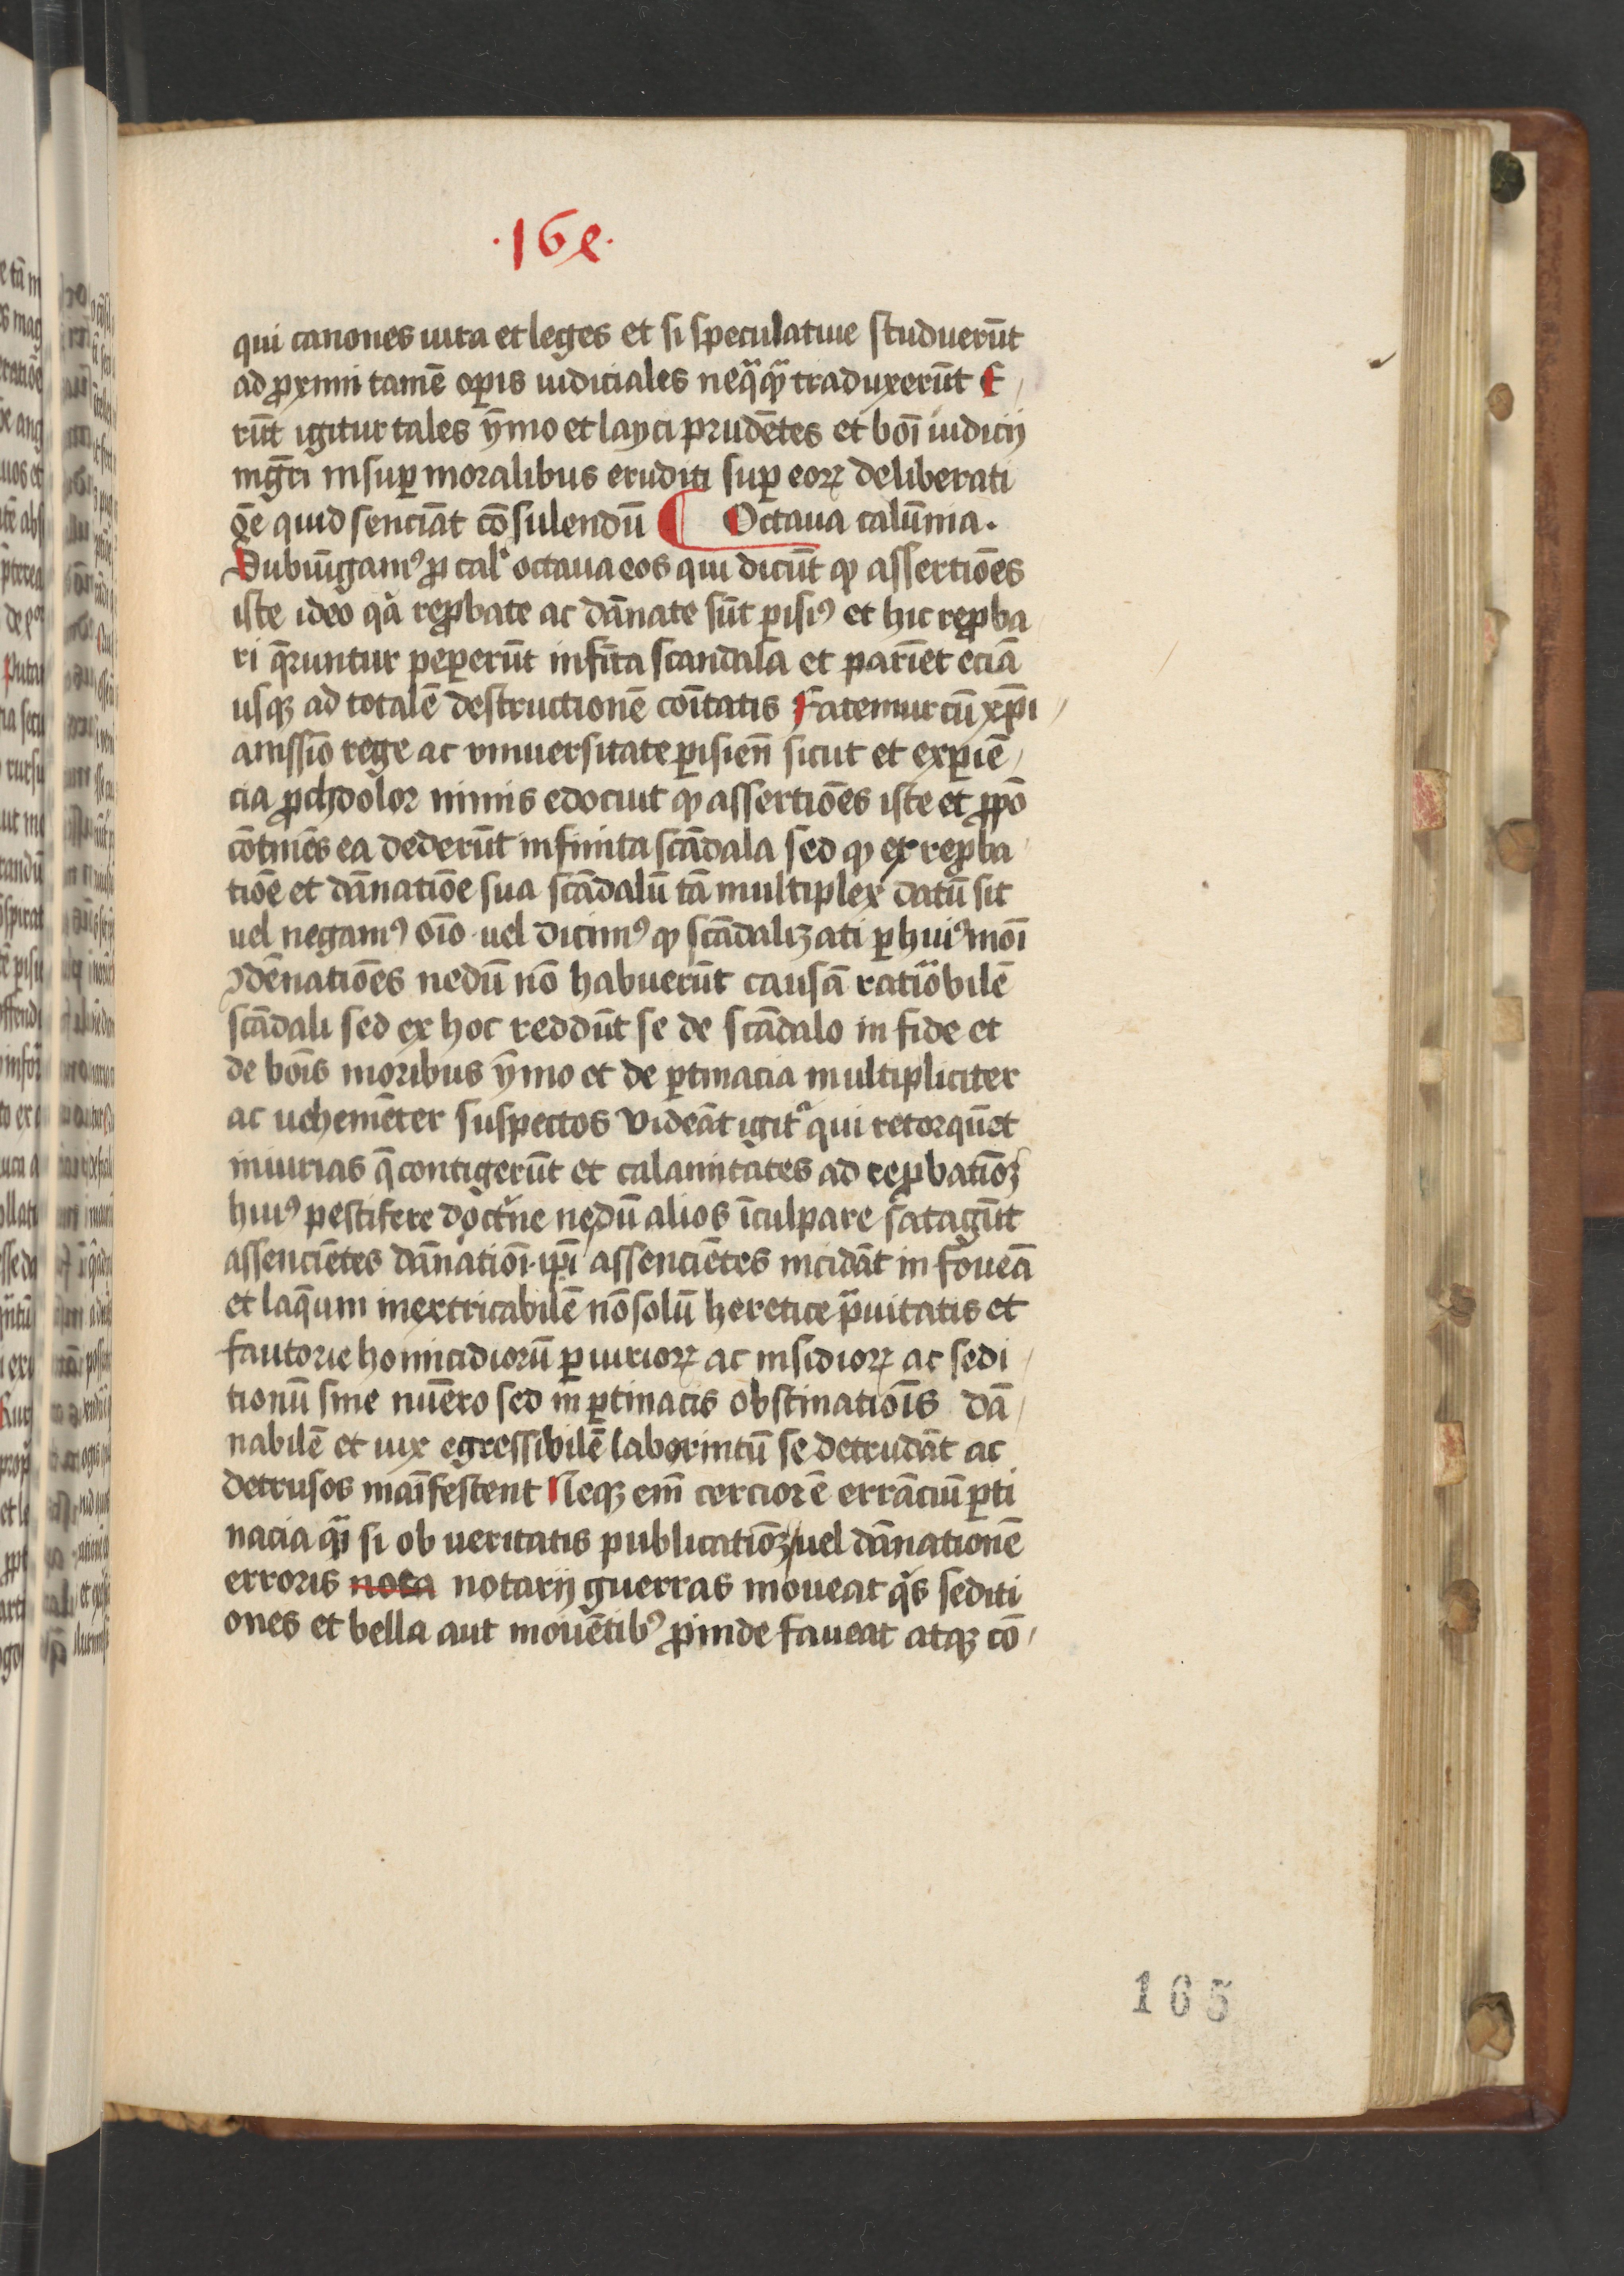 ·16ꝭ·
qui canones iura et leges et si speculatiue studuerūt
ad ꝓxīmi tamē oꝑis iudiciales neq̄q̄ traduxerūt E
rūt igitur tales ȳmo et layci prudētes et boī iudicij
mḡri insuꝑ moralibus eruditi suꝑ eoꝝ deliberati
ōe quid senciāt cōsulendū ¶ Octaua calūmia.
Subiūgamꝰ ꝓ calᵃ octaua eos qui dicūt ꝙ assertiōes
iste ideo qͣ reꝓbate ac dānate sūt ꝑisiꝰ et hic reꝓba
ri q̄runtur peperūt infīta scandala et pariēt eciā
usqꝫ ad totalē destructionē cōitatis Fatemur cū xp̄i
anissīo rege ac vniuersitate ꝑisieñ sicut et exꝑiē
cia ꝓchdolor nimis edocuit ꝙ assertiōes iste et ꝓpō
cōtinēs ea dederūt infinita scādala sed ꝙ ex reꝓba
tiōe et dānatiōe sua scādalū tā multiplex datū sit
uel negamꝰ oīo uel dicimꝰ ꝙ scādalizati ꝑ huiꝰmoī
ꝯdēnatiōes nedū nō habuerūt causā ratiōbilē
scādali sed ex hoc reddūt se de scādalo in fide et
de boīs moribus ȳmo et de ꝑtinacia multipliciter
ac uehemēter suspectos Videāt igitᷣ qui retorquēt
iniurias q̄ contigerūt et calamitates ad reꝓbatiōꝫ
huiꝰ pestifere doctͥne nedū alios īculpare satagūt
assenciētes dānatiōi ip̄i assenciētes incidāt in foueā
et laq̄um inextricabilē nō solū heretice pͣuitatis et
fautorie homicidiorū ꝑiurioꝝ ac insidioꝝ ac sedi
tionū sine nūero sed in ꝑtinacis obstinatiōis dā
nabilē et uix egressibilē laborintū se detrudāt ac
detrusos maīfestent Neqꝫ em̄ cerciorē errāciū ꝑti
nacia qͣi si ob ueritatis publicatiōꝫ uel dānationē
erroris nota notarij guerras moueat qͥs sediti
ones et bella aut mouētibꝰ ꝓinde faueat atqꝫ cō
165